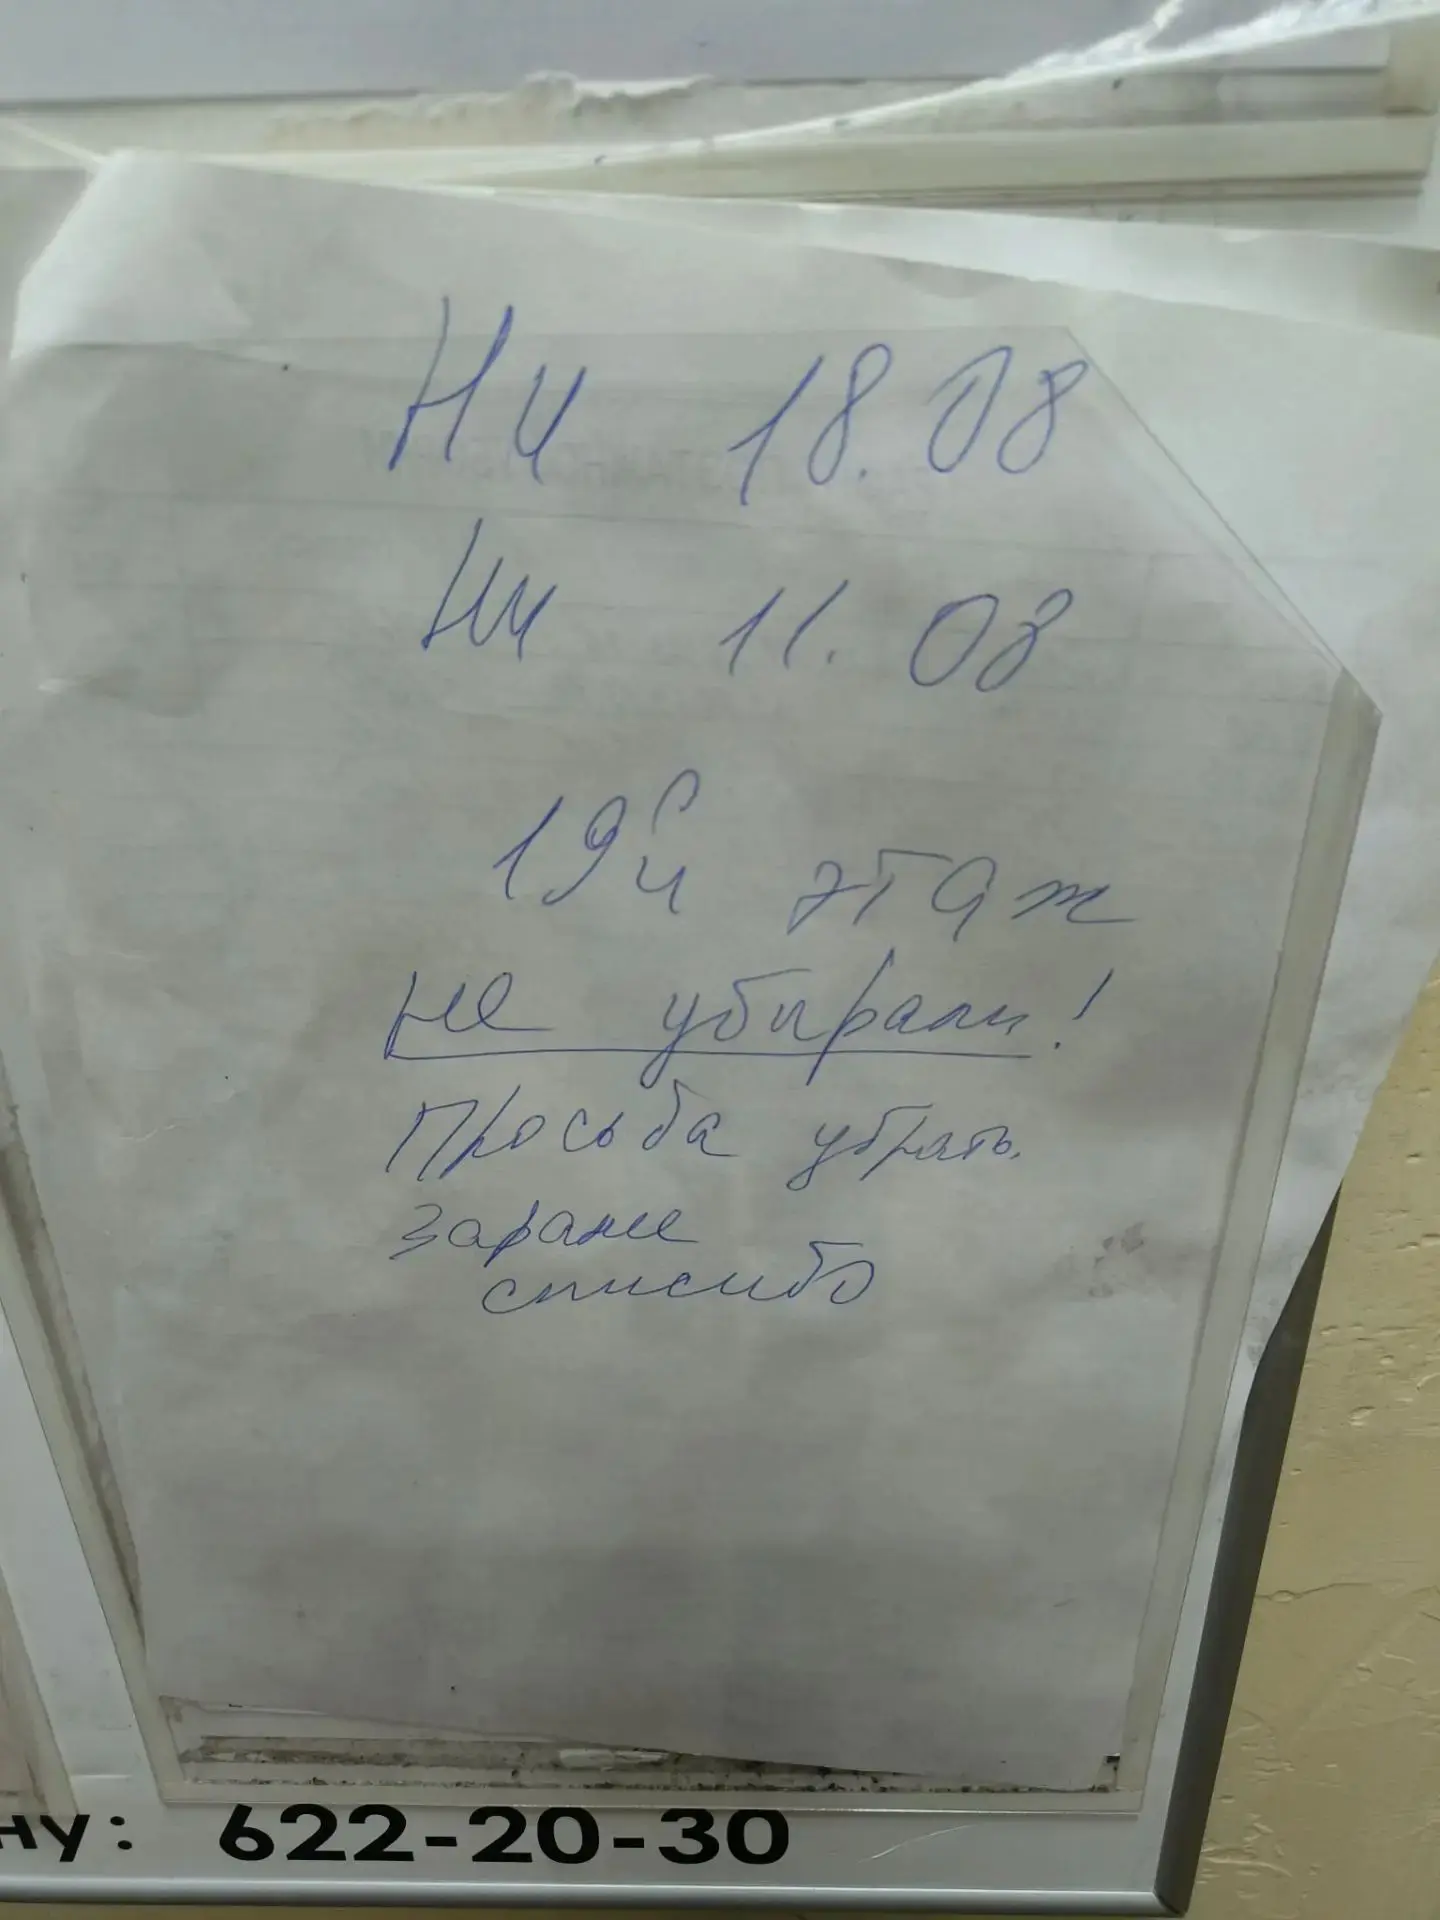 Ни 18.08
Ни 11.08
19й этаж
не убирали!
Просьба убрать.
Заранее
спасибо
ну: 622-20-30